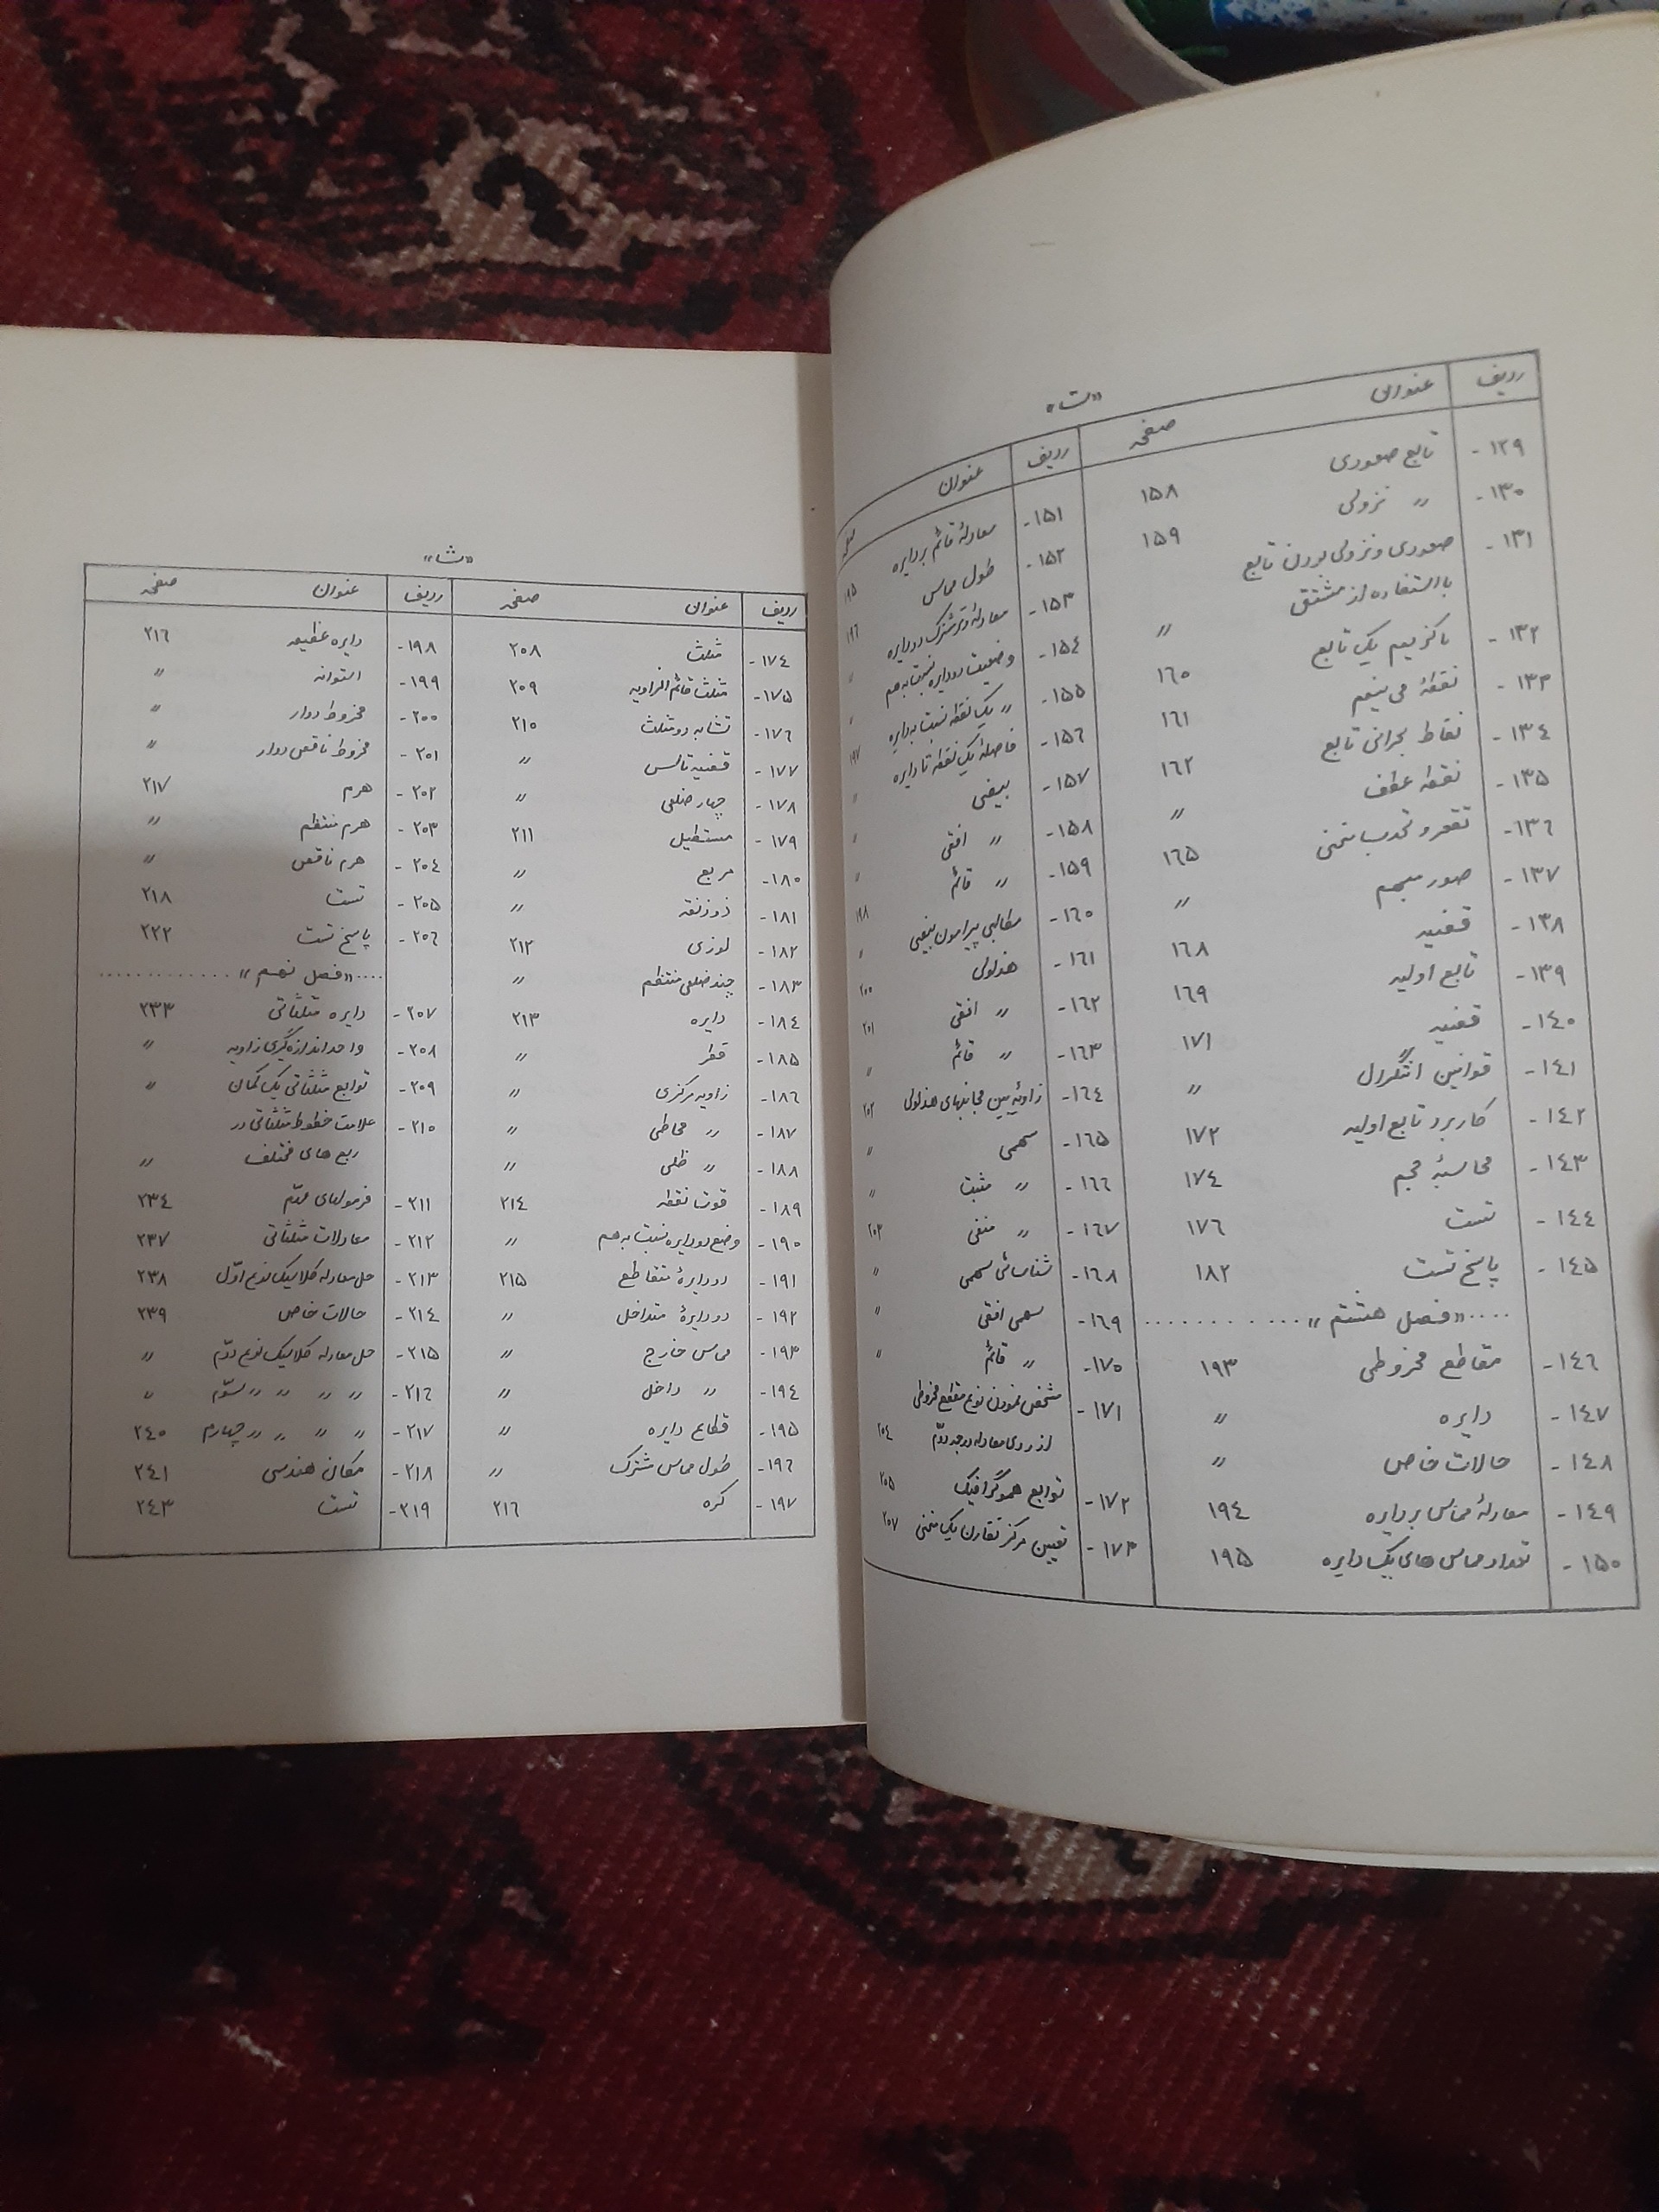 «ت»
ردیف عنوان صفحه
۱۲۹- تابع صعودی ۱۵۸
۱۳۰- 〃 نزولی ۱۵۹
۱۳۱- صعودی و نزولی بودن تابع
با استفاده از مشتق 〃
۱۳۲- ماکزیمم یک تابع ۱٦۰
۱۳۳- نقطهٔ می نیمم ۱٦۱
۱۳٤- نقاط بحرانی تابع ۱٦۲
۱۳۵- نقطه عطف 〃
۱۳٦- تقعر و تحدب منحنی ۱٦۵
۱۳۷- صور مبهم 〃
۱۳۸- قضیه ۱٦۸
۱۳۹- تابع اولیه ۱٦۹
۱٤۰- قضیه ۱۷۱
۱٤۱- قوانین انتگرال 〃
۱٤۲- کاربرد تابع اولیه ۱۷۲
۱٤۳- محاسبهٔ حجم ۱۷٤
۱٤٤- تست ۱۷٦
۱٤۵- پاسخ تست ۱۸۲
.... «فصل هشتم» ..........
۱٤٦- مقاطع مخروطی ۱۹۳
۱٤۷- دایره 〃
۱٤۸- حالات خاص 〃
۱٤۹- معادلهٔ مماس بر دایره ۱۹٤
۱۵۰- تعداد مماس های یک دایره ۱۹۵
ردیف عنوان صفحه
۱۵۱- معادلهٔ قائم بر دایره ۱۹۵
۱۵۲- طول مماس ۱۹٦
۱۵۳- معادلهٔ وتر مشترک دو دایره 〃
۱۵٤- وضعیت دو دایره نسبت به هم 〃
۱۵۵- 〃 یک نقطه نسبت به دایره ۱۹۷
۱۵٦- فاصلهٔ یک نقطه تا دایره 〃
۱۵۷- بیضی 〃
۱۵۸- 〃 افقی 〃
۱۵۹- 〃 قائم ۱۹۸
۱٦۰- مطالبی پیرامون بیضی 〃
۱٦۱- هذلولی ۲۰۰
۱٦۲- 〃 افقی ۲۰۱
۱٦۳- 〃 قائم 〃
۱٦٤- زاویهٔ بین مجانبهای هذلولی ۲۰۲
۱٦۵- سهمی 〃
۱٦٦- 〃 مثبت 〃
۱٦۷- 〃 منفی ۲۰۳
۱٦۸- شناسائی سهمی 〃
۱٦۹- سهمی افقی 〃
۱۷۰- 〃 قائم 〃
۱۷۱- مشخص نمودن نوع مقطع مخروطی
از روی معادله درجه دوّم ۲۰٤
۱۷۲- توابع هموگرافیک ۲۰۵
۱۷۳- تعیین مرکز تقارن یک منحنی ۲۰۷
«ث»
ردیف عنوان صفحه
۱۷٤- مثلث ۲۰۸
۱۷۵- مثلث قائم الزاویه ۲۰۹
۱۷٦- تشابه دو مثلث ۲۱۰
۱۷۷- قضیه تالس 〃
۱۷۸- چهار ضلعی 〃
۱۷۹- مستطیل ۲۱۱
۱۸۰- مربع 〃
۱۸۱- ذوزنقه 〃
۱۸۲- لوزی ۲۱۲
۱۸۳- چند ضلعی منتظم 〃
۱۸٤- دایره ۲۱۳
۱۸۵- قطر 〃
۱۸٦- زاویه مرکزی 〃
۱۸۷- 〃 محاطی 〃
۱۸۸- 〃 ظلی 〃
۱۸۹- قوت نقطه ۲۱٤
۱۹۰- وضع دو دایره نسبت به هم 〃
۱۹۱- دو دایرهٔ متقاطع ۲۱۵
۱۹۲- دو دایرهٔ متداخل 〃
۱۹۳- مماس خارج 〃
۱۹٤- 〃 داخل 〃
۱۹۵- قطاع دایره 〃
۱۹٦- طول مماس مشترک 〃
۱۹۷- کره ۲۱٦
ردیف عنوان صفحه
۱۹۸- دایره عظیمه ۲۱٦
۱۹۹- استوانه 〃
۲۰۰- مخروط دوار 〃
۲۰۱- مخروط ناقص دوار 〃
۲۰۲- هرم ۲۱۷
۲۰۳- هرم منتظم 〃
۲۰٤- هرم ناقص 〃
۲۰۵- تست ۲۱۸
۲۰٦- پاسخ تست ۲۲۲
.... «فصل نهم» .............
۲۰۷- دایره مثلثاتی ۲۳۳
۲۰۸- واحد اندازه گیری زاویه 〃
۲۰۹- توابع مثلثاتی یک کمان 〃
۲۱۰- علامت خطوط مثلثاتی در
ربع های مختلف 〃
۲۱۱- فرمولهای مهّم ۲۳٤
۲۱۲- معادلات مثلثاتی ۲۳۷
۲۱۳- حل معادله کلاسیک نوع اوّل ۲۳۸
۲۱٤- حالات خاص ۲۳۹
۲۱۵- حل معادله کلاسیک نوع دوّم 〃
۲۱٦- 〃 〃 〃 〃 سوّم 〃
۲۱۷- 〃 〃 〃 〃 چهارم ۲٤۰
۲۱۸- مکان هندسی ۲٤۱
۲۱۹- تست ۲٤۳